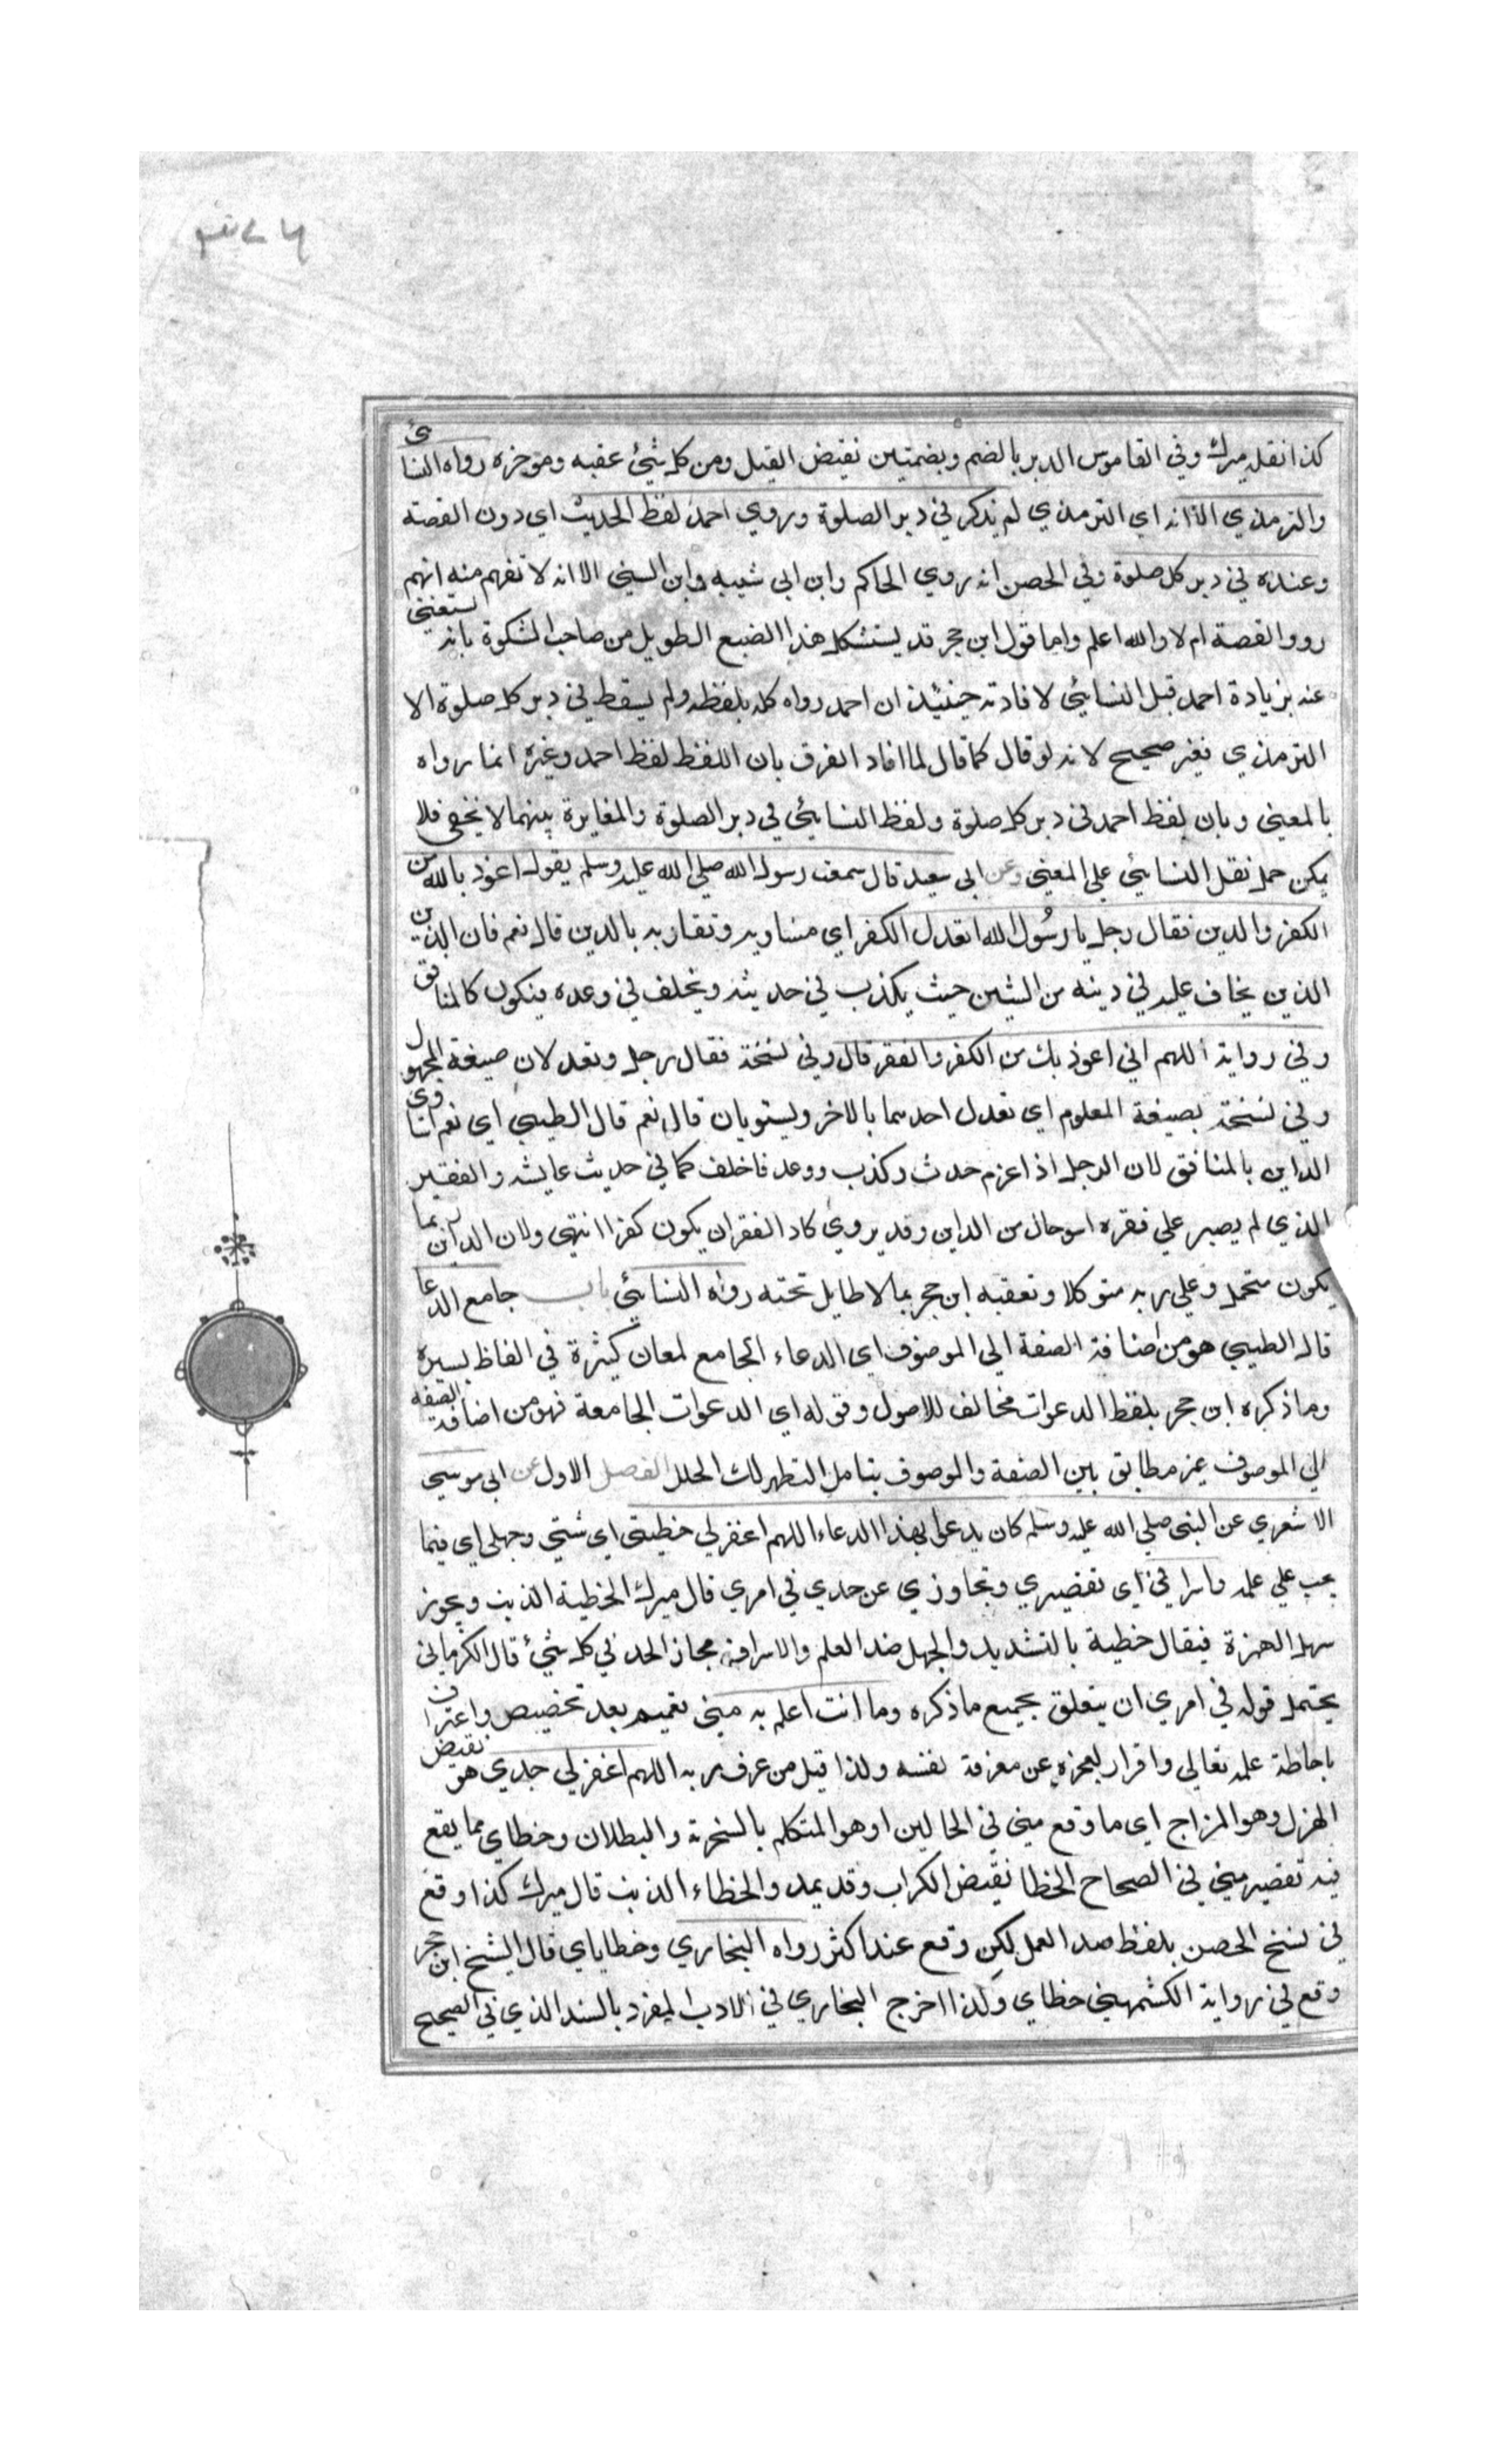 كذا نقله ميرك وفي القاموس الدبر بالضم وبضمتين نقيض القبل ومن كل شيئ عقبه وموخره رواه النسائي
والترمذي الا انه اي الترمذي لم يذكر في دبر الصلوة وروي احمد لفظ الحديث اي دون القصة
وعنده في دبر كل صلوة وفي الحصن انه روي الحاكم وابن ابي شيبه وابن السني الا انه لا تفهم منه انهم
رووا القصة ام لا والله اعلم واما قول ابن حجر قد يستشكل هذا الضبع الطويل من صاحب المشكوة بانه يستغني
عنه بزيادة احمد قبل النسائي لافادته حينئذ ان احمد رواه كله بلفظه ولم يسقط في دبر كل صلوة الا
الترمذي فغير صحيح لانه لو قال كما قال لما افاد الفرق بان اللفظ لفظ احمد وغيره انما رواه
بالمعني وبان لفظ احمد في دبر كل صلوة ولفظ النسائي في دبر الصلوة والمغايرة بينهما لا يخفي فلا
يمكن حمل نقل النسائي علي المعني وعن ابي سعيد قال سمعت رسول الله صلي الله عليه وسلم يقول اعوذ بالله من
الكفر والدين فقال رجل يا رسُول الله اتعدل الكفر اي مساويه وتقاربه بالدين قال نعم فان الدين
الذين يخاف عليه في دينه من الشين حيث يكذب في حديثه ويخلف في وعده فيكون كالمنافق
وفي رواية اللهم اني اعوذ بك من الكفر والفقر قال وفي نسخة فقال رجل ويعدلان صيغة المجهول
وفي نسخة بصيغة المعلوم اي تعدل احدهما بالاخر ويستويان قال نعم قال الطيبي اي نعم اتساوي
الداين بالمنافق لان الرجل اذا عزم حدث وكذب ووعد فاخلف كما في حديث عايشه والفقير
الذي لم يصبر علي فقره اسو حال من الداين وقد يروي كاد الفقر ان يكون كفرا انتهي ولان الداين ربما
يكون متحمل وعلي ربه متوكلا وتعقبه ابن حجر بما لا طايل تحته رواه النسائي باب جامع الدعا
قال الطيبي هو من اضافة الصفة الي الموصوف اي الدعاء الجامع لمعان كثيرة في الفاظ يسيرة
وما ذكره ابن حجر بلفظ الدعوات مخالف للاصول وقوله اي الدعوات الجامعة فهو من اضافة الصفه
الي الموصوف غير مطابق بين الصفة والموصوف بتامل التظهر لك الحلل الفصل الاول عن ابي موسي
الاشعري عن النبي صلي الله عليه وسلم كان يدعوا بهذا الدعاء اللهم اغفر لي خطيتي اي شتي وجهلي اي فيما
يجب علي علمه واسرافي اي تقصيري وتجاوزي عن حدي في امري قال ميرك الخطية الذنب ويجوز
سهل الهمزة فيقال خطية بالتشديد والجهل ضد العلم والاسراف مجاز الحد في كل شيئ قال الكرماني
يحتمل قوله في امري ان يتعلق بجميع ما ذكره وما انت اعلم به مني تعميم بعد تخصيص واعتراف
باحاطة علمه تعالي واقرار بعجزه عن معرفة نفسه ولذا قيل من عرف ربه اللهم اغفر لي جدي هو نقيض
الهزل وهو المزاج اي ما وقع مني في الحالين او هو المتكلم بالسخرية والبطلان وخطاي مما يقع
فيه تقصير مني في الصحاح الخطا نقيض الكراب وقد يمد والخطاء الذنب قال ميرك كذا وقع
في نسخ الحصن بلفظ صد العمل لكن وقع عند اكثر رواه البخاري وخطاياي قال الشيخ ابن حجر
وقع في رواية الكشمهيني خطاي وكذا اخرج البخاري في الادب المفرد بالسند الذي في الصحيح